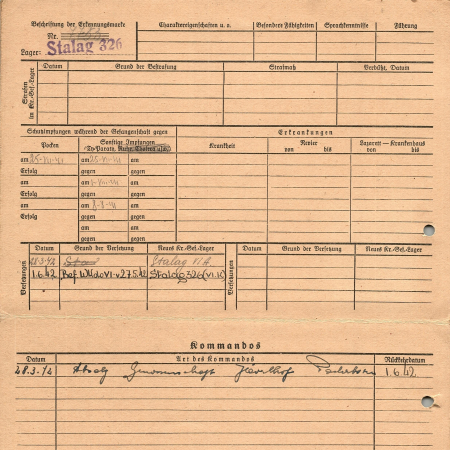 Beschreibung der Erkennungsmarke
Nr.
Lager: Stalag 326
Charaktereigenschaften u. s.
Besondere Fähigkeiten
Sprachkenntnisse
Führung
Strafen im Kr.-Gef.-Lager
Datum
Grund der Bestrafung
Strafmaß
Verbüßt, Datum
Schutzimpfungen während der Gefangenschaft gegen
Erkrankungen
Pocken
Sonstige Impfungen
(Ty-Paraty. Ruhr, Cholera usw.)
Krankheit
Revier
von bis
Lazarett – Krankenhaus
von bis
am 25.VII.41 am 25.VII.41 am
Erfolg gegen gegen
am am 1.VIII.41 am
Erfolg gegen gegen
am am 8.8.41 am
Erfolg gegen gegen
am am
gegen gegen
Versetzungen
Datum
Grund der Versetzung
Neues Kr.-Gef.-Lager
Versetzungen
Datum
Grund der Versetzung
Neues Kr.-Gef.-Lager
28.3.42 Stalag VI A
1.6.42 Bef. VI v. 27.5.42 Stalag 326 (VI K)
Kommandos
Datum
Art des Kommandos
Rückkehrdatum
28.3.42 1.6.42